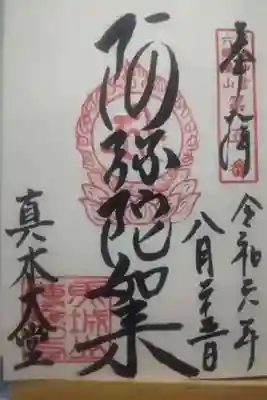 奉拝
令和六年
八月廿五日
阿弥陀如来
真木大堂